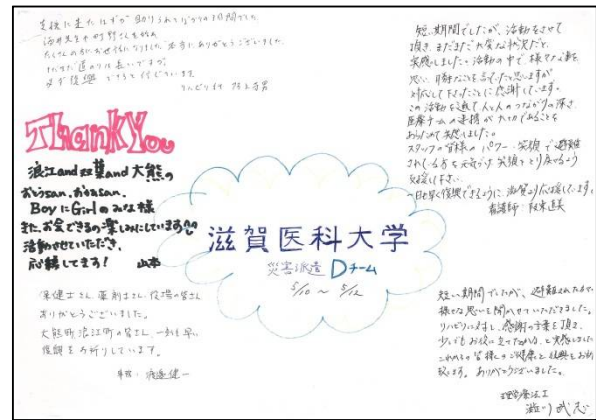 支援に来たはずが助けられてばかりの3日間でした。
たくさんの方にお世話になりました。本当にありがとうございました。
まだまだ道のりは長いですが、
必ず復興できると信じています。
Thank You
浪江and双葉and大熊の
おとうsan、おかあsan、
BoyにGirlのみな様
また、お会できるの楽しみにしています
活動させていただき、
応援してます! 山本
保健士さん 薬剤士さん 役場の皆さん
ありがとうございました。
大熊町、浪江町の皆さん、一刻も早い
復興をお祈りしています。
事務 渡邉健一
滋賀医科大学
災害派遣 Dチーム
5/10 ~ 5/12
短い期間でしたが、活動をさせて
頂き、まだまだ大変な状況だと、
実感しました。活動の中で、様々な
対応して下さったことに感謝しています。
この活動を通して人と人のつながりの深さ、
医療チームの連携が大切であることを
あらためて実感しました。
スタッフの皆様のパワー、笑顔で避難
されている方を元気づけ、笑顔をとり戻せるよう
支援して下さい。
一日も早く復興できるように、滋賀より応援しています。
看護師
短い期間でしたが、避難された方々の
様々な思いを聞かせていただきました。
リハビリに対し、感謝の言葉を頂き、
少しでもお役に立てたかな、と実感しました
これからの皆様のご健康と復興をお祈り
致します。ありがとうございました。
理学療法士